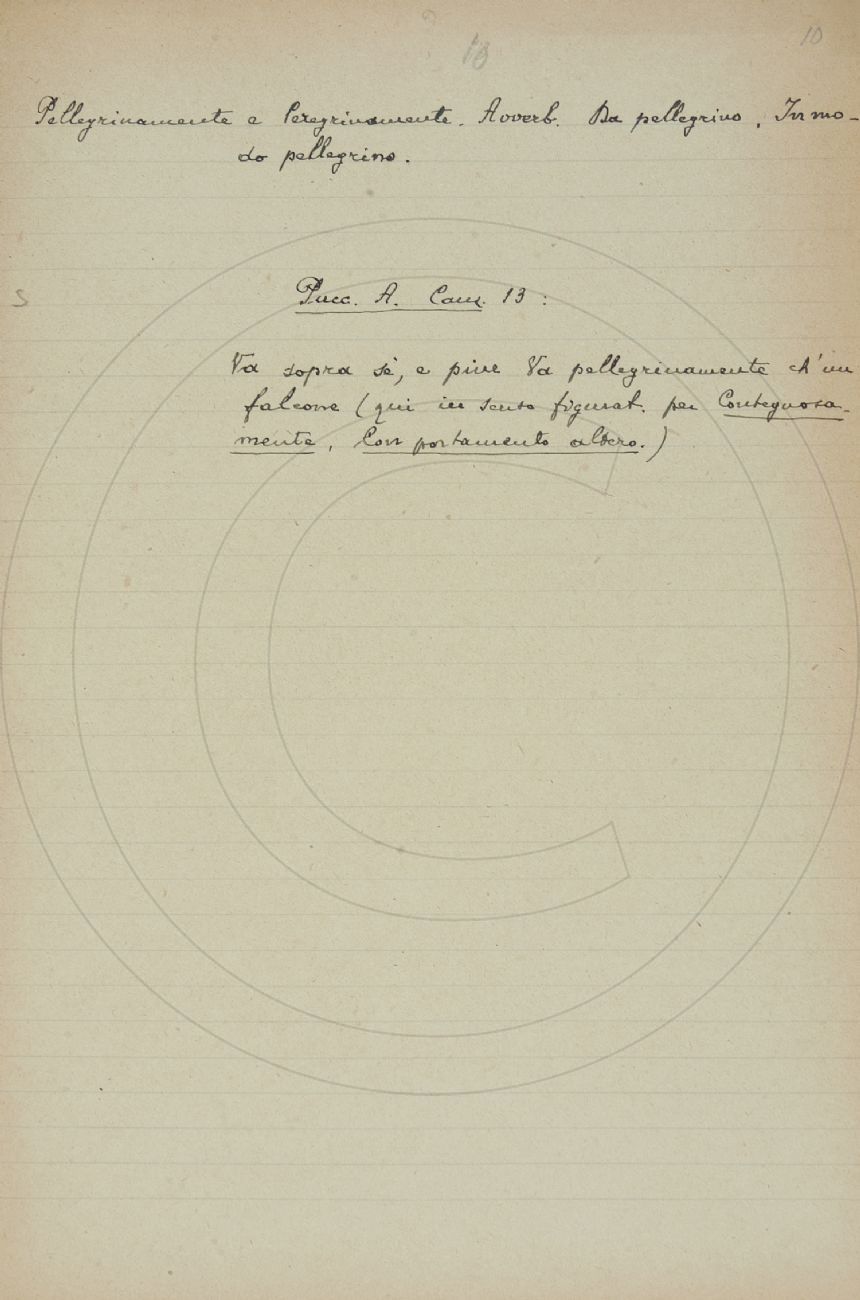 10
10
Pellegrinamente e Peregrinamente. Avverb. Da pellegrino, In mo-
do pellegrino.
S
Pucc. A. Canz. 13:
Va sopra sè, e piue Va pellegrinamente ch'un
falcone (qui in senso figurat. per Contegnosa-
mente, Con portamento altero.)